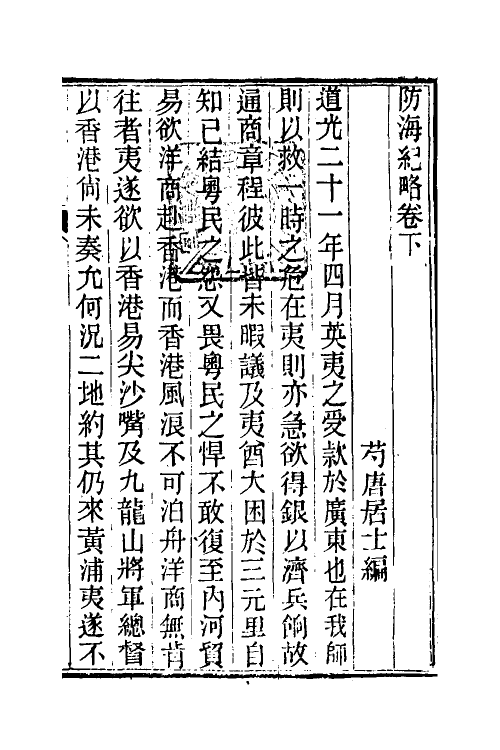 防海紀略卷下
芍唐居士編
道光二十一年四月英夷之受款於廣東也在我師
則以救一時之危在夷則亦急欲得銀以濟兵餉故
通商章程彼此皆未暇議及夷酋大困於三元里自
知已結粵民之怨又畏粵民之悍不敢復至內河貿
易欲洋商赴香港而香港風浪不可泊舟洋商無肯
往者夷遂欲以香港易尖沙嘴及九龍山將軍總督
以香港尙未奏允何況二地約其仍來黃浦夷遂不